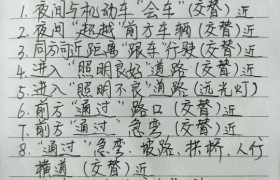 1. 夜间与机动车“会车”(交替)近
2. 夜间“超越”前方车辆(交替)
3. 同方向近距离“跟车”行驶(交替)近
4. 进入“照明良好”道路(交替)近
5. 进入“照明不良”道路(远光灯)
6. 前方“通过”路口(交替)近
7. 前方“通过”急弯(交替)
8. “通过”急弯、坡路、拱桥、人行
横道(交替)近